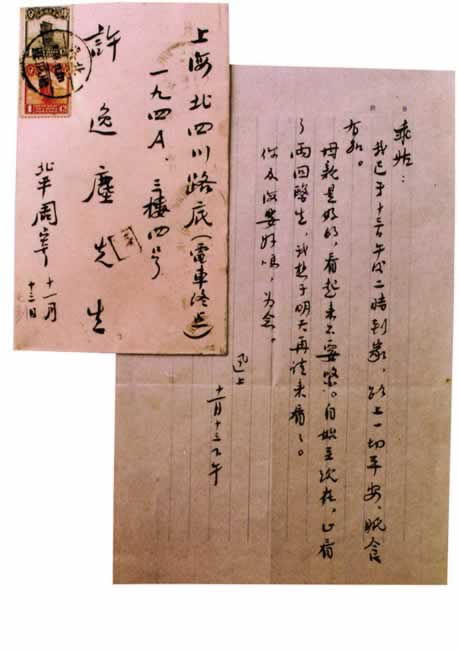 上海北四川路底(電車終点)
一九四A.三樓四号
許逸塵先生
北平周寄
十一月
十三日
乖姑:
我已于十三日午后二時到家,路上一切平安,眠食
有加。
母親是好的,看起来不要緊。自始至現在,止看
了兩回醫生,我想于明天再請来看看。
你及海嬰好嗎,为念。
迅上
十一月十三下午